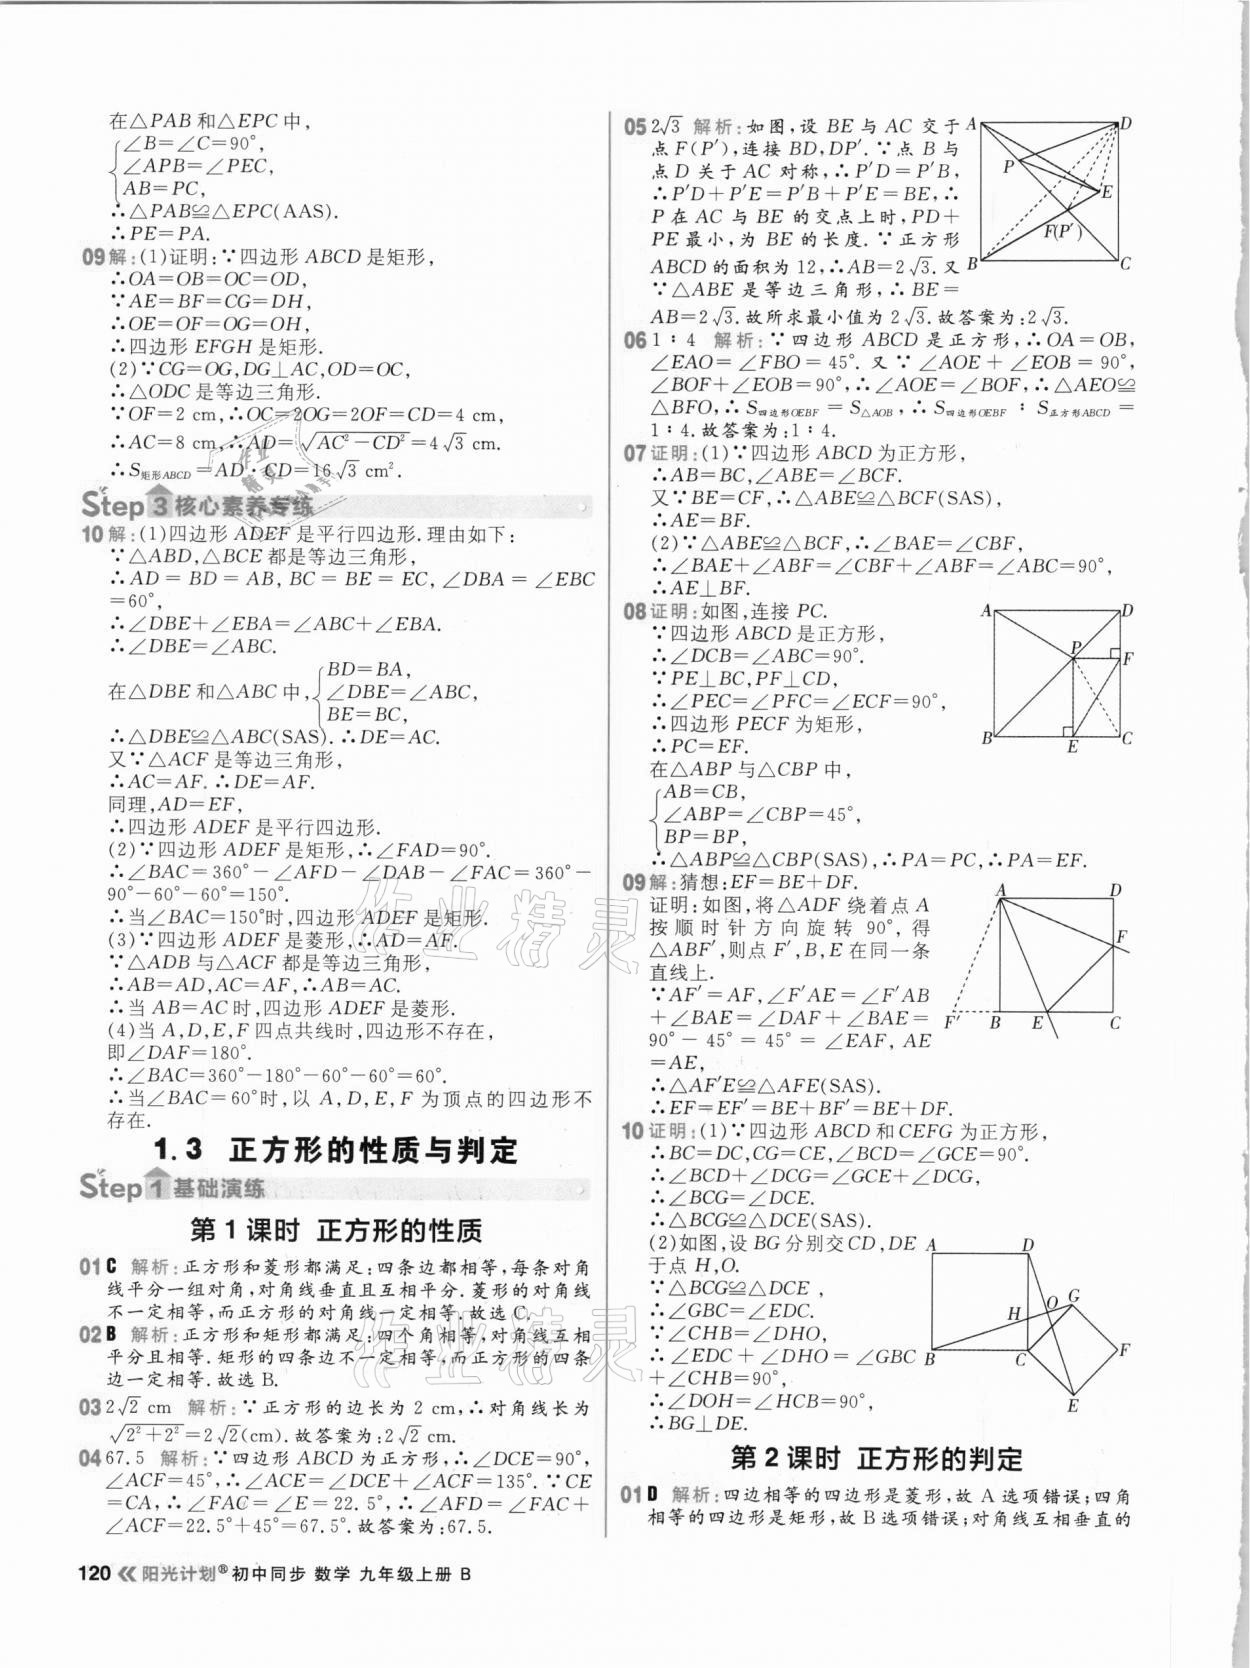 在△PAB和△EPC中,
∠B=∠C=90°,
∠APB=∠PEC,
AB=PC,
∴△PAB≌△EPC(AAS).
∴PE=PA.
09 解:(1)证明:∵四边形ABCD是矩形,
∴OA=OB=OC=OD,
∵AE=BF=CG=DH,
∴OE=OF=OG=OH,
∴四边形EFGH是矩形.
(2)∵CG=OG,DG⊥AC,OD=OC,
∴△ODC是等边三角形.
∵OF=2 cm,∴OC=2OG=2OF=CD=4 cm,
∴AC=8 cm,∴AD=√(AC²-CD²)=4√3 cm.
∴S矩形ABCD=AD·CD=16√3 cm².
Step 3 核心素养专练
10 解:(1)四边形ADEF是平行四边形.理由如下:
∵△ABD,△BCE都是等边三角形,
∴AD=BD=AB,BC=BE=EC,∠DBA=∠EBC
=60°,
∴∠DBE+∠EBA=∠ABC+∠EBA.
∴∠DBE=∠ABC.
在△DBE和△ABC中,
BD=BA,
∠DBE=∠ABC,
BE=BC,
∴△DBE≌△ABC(SAS).∴DE=AC.
又∵△ACF是等边三角形,
∴AC=AF.∴DE=AF.
同理,AD=EF,
∴四边形ADEF是平行四边形.
(2)∵四边形ADEF是矩形,∴∠FAD=90°.
∴∠BAC=360°-∠AFD-∠DAB-∠FAC=360°-
90°-60°-60°=150°.
∴当∠BAC=150°时,四边形ADEF是矩形.
(3)∵四边形ADEF是菱形,∴AD=AF.
∵△ADB与△ACF都是等边三角形,
∴AB=AD,AC=AF,∴AB=AC.
∴当AB=AC时,四边形ADEF是菱形.
(4)当A,D,E,F四点共线时,四边形不存在,
即∠DAF=180°.
∴∠BAC=360°-180°-60°-60°=60°.
∴当∠BAC=60°时,以A,D,E,F为顶点的四边形不
存在.
1.3 正方形的性质与判定
Step 1 基础演练
第1课时 正方形的性质
01 C 解析:正方形和菱形都满足:四条边都相等,每条对角
线平分一组对角,对角线垂直且互相平分.菱形的对角线
不一定相等,而正方形的对角线一定相等.故选C.
02 B 解析:正方形和矩形都满足:四个角相等,对角线互相
平分且相等.矩形的四条边不一定相等,而正方形的四条
边一定相等.故选B.
03 2√2 cm 解析:∵正方形的边长为2 cm,∴对角线长为
√(2²+2²)=2√2(cm).故答案为:2√2 cm.
04 67.5 解析:∵四边形ABCD为正方形,∴∠DCE=90°,
∠ACF=45°,∴∠ACE=∠DCE+∠ACF=135°.∵CE
=CA,∴∠FAC=∠E=22.5°,∴∠AFD=∠FAC+
∠ACF=22.5°+45°=67.5°.故答案为:67.5.
120 阳光计划® 初中同步 数学 九年级上册 B
05 2√3 解析:如图,设BE与AC交于
点F(P′),连接BD,DP′.∵点B与
点D关于AC对称,∴P′D=P′B,
∴P′D+P′E=P′B+P′E=BE,∴
P在AC与BE的交点上时,PD+
PE最小,为BE的长度.∵正方形
ABCD的面积为12,∴AB=2√3.又
∵△ABE是等边三角形,∴BE=
AB=2√3.故所求最小值为2√3.故答案为:2√3.
A
D
P
E
F(P′)
B
C
06 1∶4 解析:∵四边形ABCD是正方形,∴OA=OB,
∠EAO=∠FBO=45°.又∵∠AOE+∠EOB=90°,
∠BOF+∠EOB=90°,∴∠AOE=∠BOF,∴△AEO≌
△BFO,∴S四边形OEBF=S△AOB,∴S四边形OEBF∶S正方形ABCD=
1∶4.故答案为:1∶4.
07 证明:(1)∵四边形ABCD为正方形,
∴AB=BC,∠ABE=∠BCF.
又∵BE=CF,∴△ABE≌△BCF(SAS),
∴AE=BF.
(2)∵△ABE≌△BCF,∴∠BAE=∠CBF,
∴∠BAE+∠ABF=∠CBF+∠ABF=∠ABC=90°,
∴AE⊥BF.
08 证明:如图,连接PC.
∵四边形ABCD是正方形,
∴∠DCB=∠ABC=90°.
∵PE⊥BC,PF⊥CD,
∴∠PEC=∠PFC=∠ECF=90°,
∴四边形PECF为矩形,
∴PC=EF.
在△ABP与△CBP中,
AB=CB,
∠ABP=∠CBP=45°,
BP=BP,
∴△ABP≌△CBP(SAS),∴PA=PC,∴PA=EF.
A
D
P
F
B
E
C
09 解:猜想:EF=BE+DF.
证明:如图,将△ADF绕着点A
按顺时针方向旋转90°,得
△ABF′,则点F′,B,E在同一条
直线上.
∵AF′=AF,∠F′AE=∠F′AB
+∠BAE=∠DAF+∠BAE=
90°-45°=45°=∠EAF,AE
=AE,
∴△AF′E≌△AFE(SAS).
∴EF=EF′=BE+BF′=BE+DF.
A
D
F
F′
B
E
C
10 证明:(1)∵四边形ABCD和CEFG为正方形,
∴BC=DC,CG=CE,∠BCD=∠GCE=90°.
∴∠BCD+∠DCG=∠GCE+∠DCG,
∴∠BCG=∠DCE.
∴△BCG≌△DCE(SAS).
(2)如图,设BG分别交CD,DE
于点H,O.
∵△BCG≌△DCE,
∴∠GBC=∠EDC.
∵∠CHB=∠DHO,
∴∠EDC+∠DHO=∠GBC
+∠CHB=90°,
∴∠DOH=∠HCB=90°.
∴BG⊥DE.
A
D
H
O
G
B
C
F
E
第2课时 正方形的判定
01 D 解析:四边相等的四边形是菱形,故A选项错误;四角
相等的四边形是矩形,故B选项错误;对角线互相垂直的
作业精灵
作业精灵